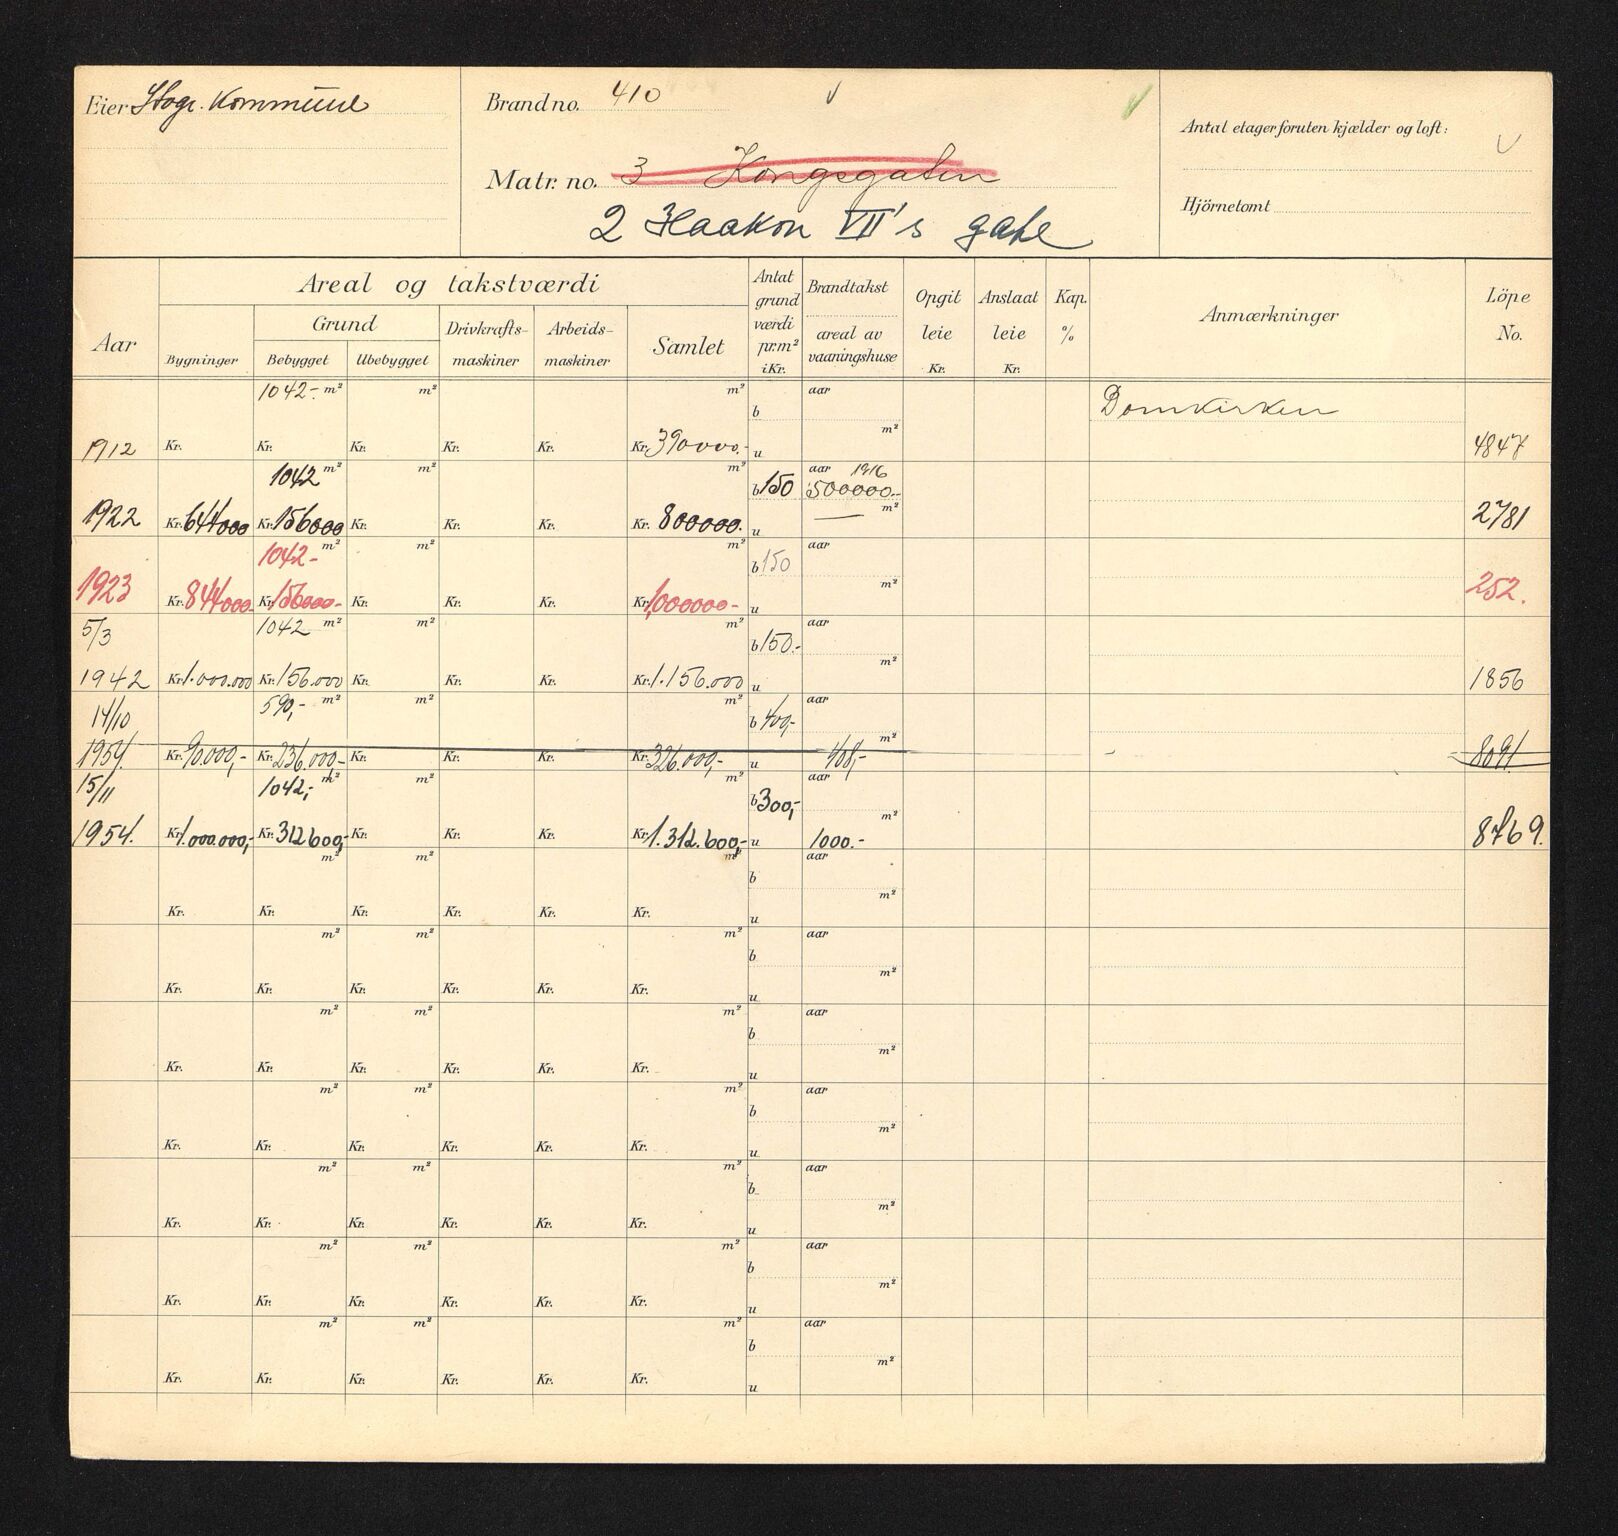 Eier Stvgr. Kommune
Brand no. 410
Matr. no. 3 Kongsgaten
2 Haakon VII's gate
Antal etager foruten kjælder og loft:
Hjörnetomt
Aar
Areal og takstværdi
Bygninger
Grund
Bebygget
Ubebygget
Drivkrafts-
maskiner
Arbeids-
maskiner
Samlet
Antat
grund
værdi
pr. m²
i Kr.
Brandtakst
areal av
vaaningshuse
Opgit
leie
Kr.
Anslaat
leie
Kr.
Kap.
%
Anmærkninger
Löpe
No.
1042.- m² m² m² aar Domkirken
b
m²
1912 Kr. Kr. Kr. Kr. Kr. Kr. 390000.- u 4847
1042 m² m² m² aar 1916
b 150 500000.-
m²
1922 Kr. 644000 Kr. 156000 Kr. Kr. Kr. Kr. 800000. u — 2781
1042- m² m² m² aar
b 150
m²
1923 Kr. 844000.- Kr. 156000.- Kr. Kr. Kr. Kr. 1,000000- u 252.
5/3 1042 m² m² m² aar
b 150.-
m²
1942 Kr. 1.000.000 Kr. 156.000 Kr. Kr. Kr. Kr. 1.156.000 u 1856
14/10 590,- m² m² m² aar
b 400,-
m²
1954. Kr. 90.000,- Kr. 236.000,- Kr. Kr. Kr. Kr. 326.000,- u 408,- 8091.
15/11 1042,- m² m² m² aar
b 300,-
m²
1954. Kr. 1.000.000,- Kr. 312600,- Kr. Kr. Kr. Kr. 1.312.600,- u 1000.- 8769.
m² m² m² aar
b
m²
Kr. Kr. Kr. Kr. Kr. Kr.
u
m² m² m² aar
b
m²
Kr. Kr. Kr. Kr. Kr. Kr.
u
m² m² m² aar
b
m²
Kr. Kr. Kr. Kr. Kr. Kr.
u
m² m² m² aar
b
m²
Kr. Kr. Kr. Kr. Kr. Kr.
u
m² m² m² aar
b
m²
Kr. Kr. Kr. Kr. Kr. Kr.
u
m² m² m² aar
b
m²
Kr. Kr. Kr. Kr. Kr. Kr.
u
m² m² m² aar
b
m²
Kr. Kr. Kr. Kr. Kr. Kr.
u